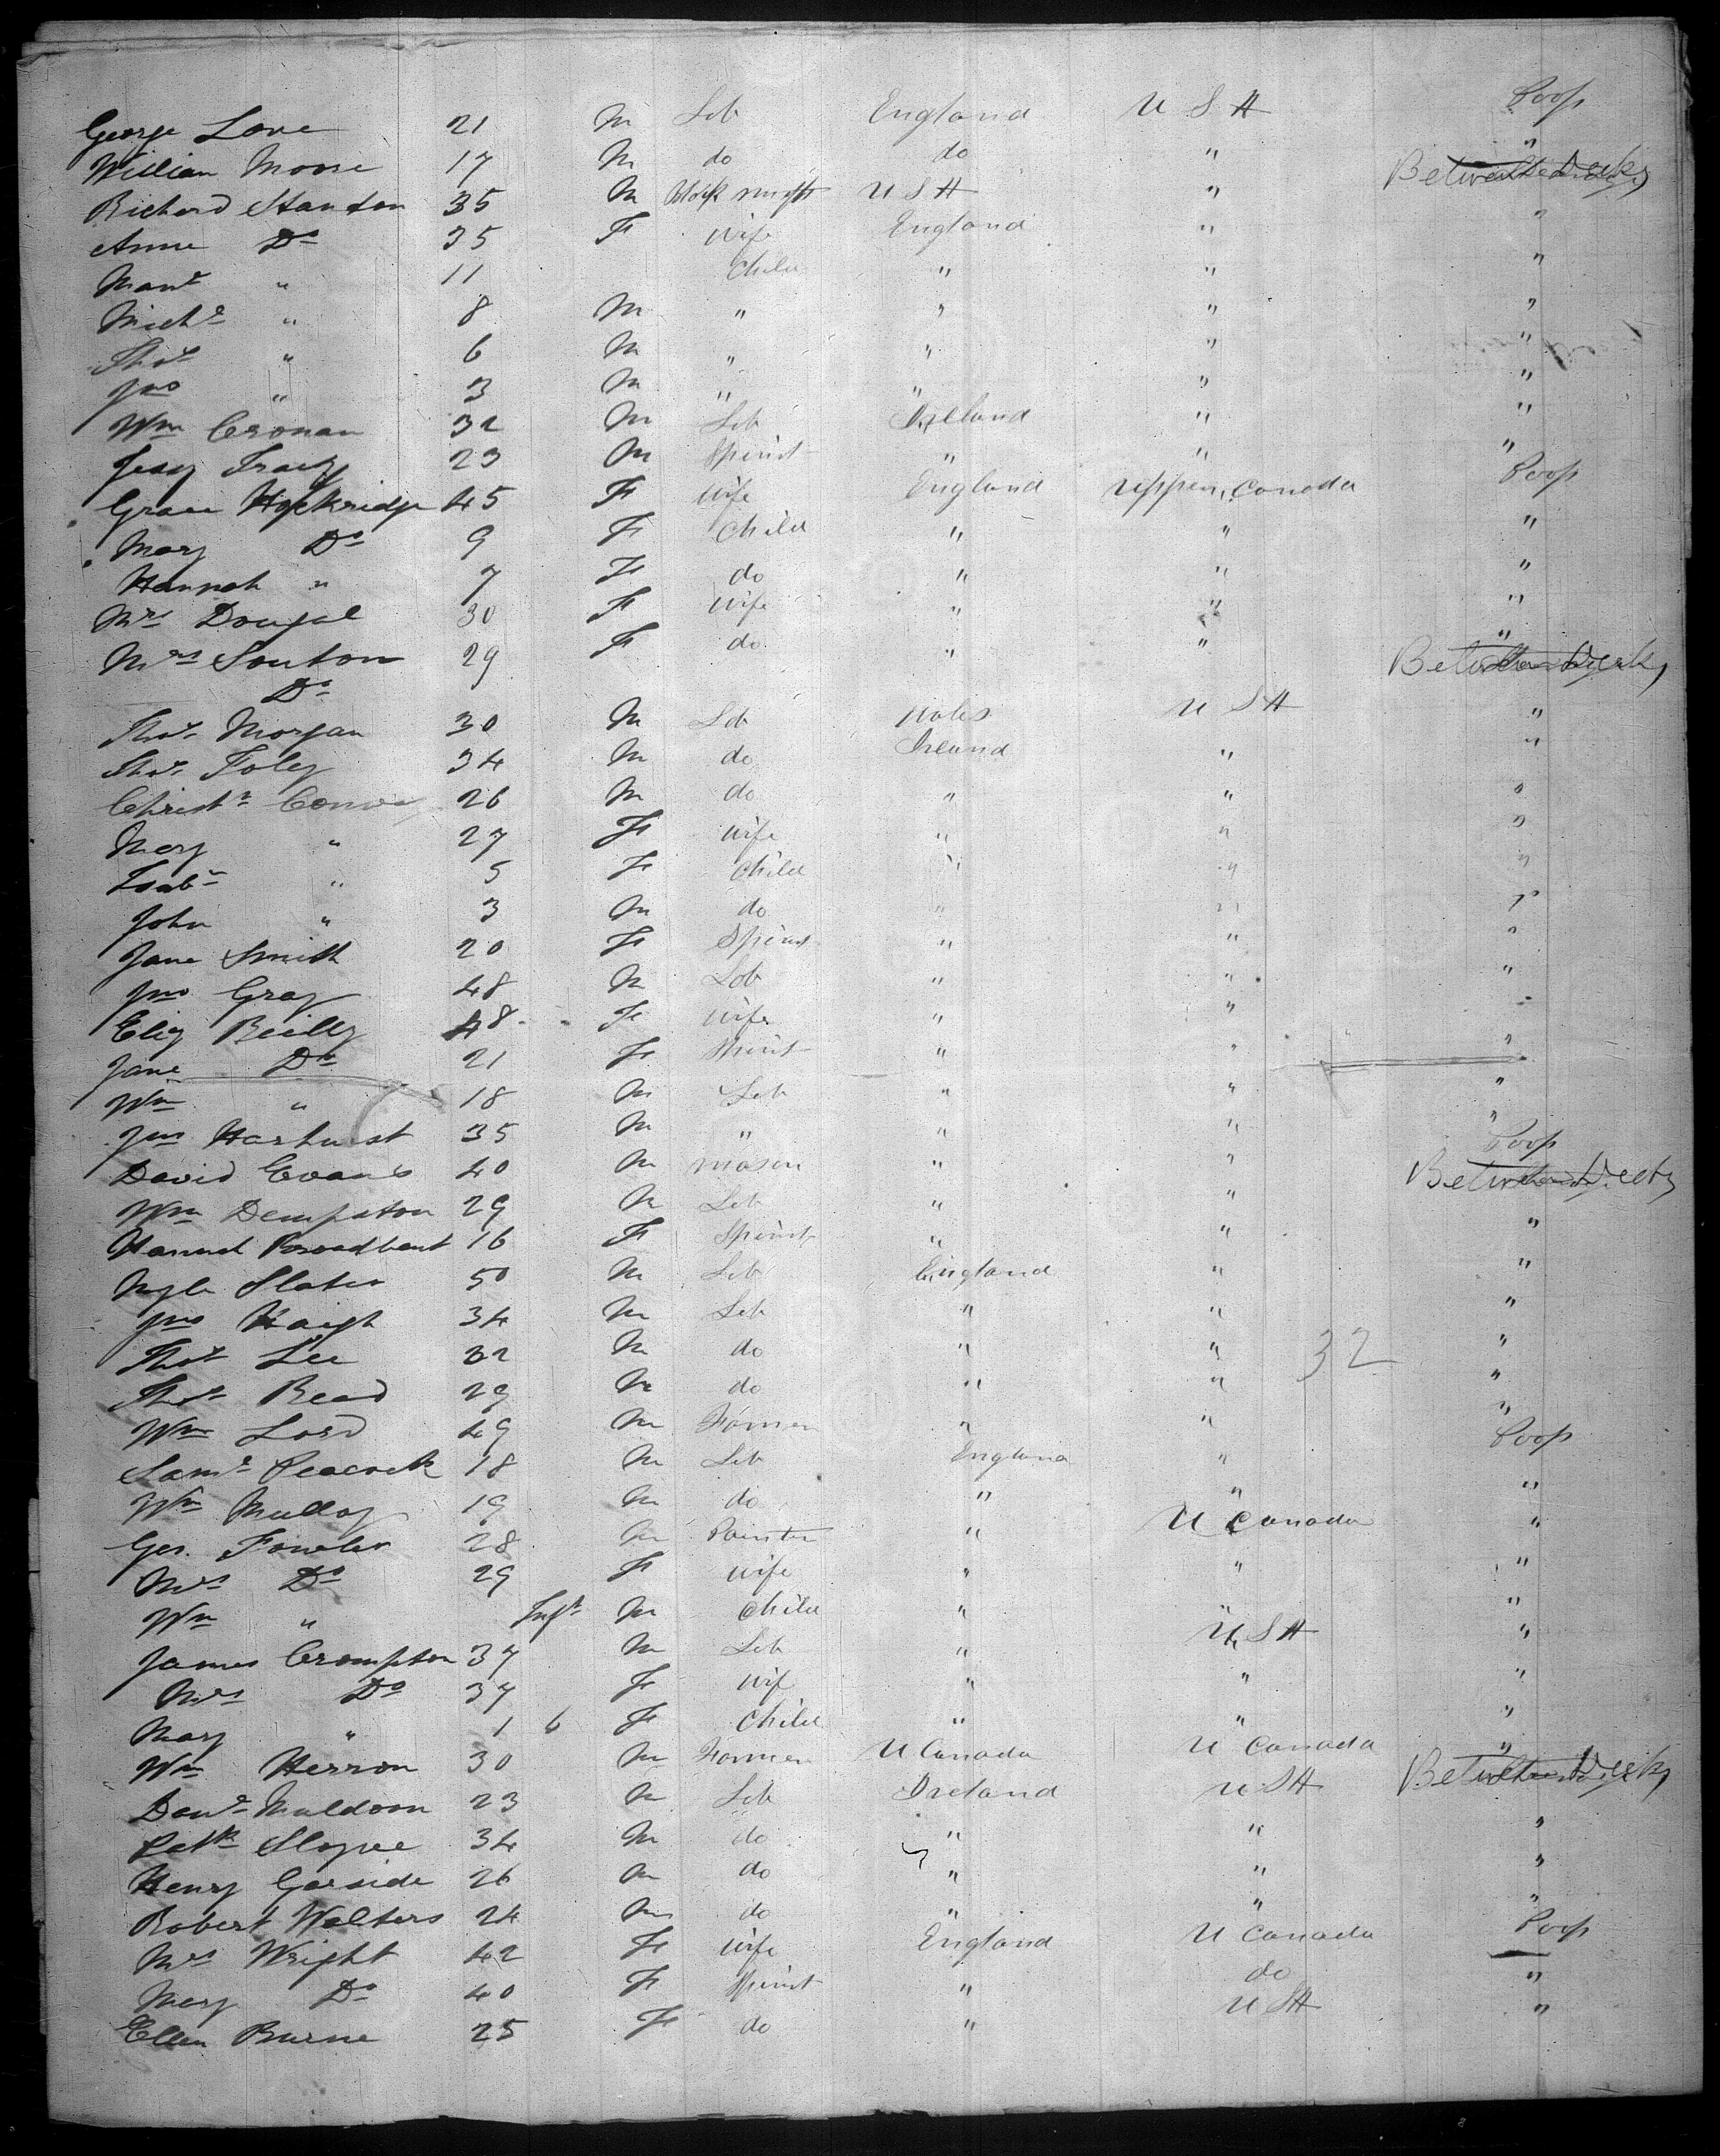 George Love 21 M Lab England U S A Poop
William Moore 17 M do do " "
Richard Stanton 35 M Black smith U S A " Between Decks
Anne Do 35 F wife England " "
Mart " 11 Child " " "
Michl " 8 M " " " "
Thos " 6 M " " " "
Jno " 3 M " " " "
Wm Cronan 32 M Lab Ireland " "
Tracy 23 M Spinst " " "
Grace Hockridge 45 F wife England Upper Canada Poop
Mary Do 9 F Child " " "
Hannah " 7 F do " " "
Mrs Dougal 30 F wife " " "
Mrs Souton 29 F do " " "
Do Between Decks
Thos Morgan 30 M Lab Wales U S A "
Thos Foley 34 M do Ireland " "
Christr Conway 26 M do " " "
Mary " 27 F wife " " "
Isab " 5 F Child " " "
John " 3 M do " " "
Jane Smith 20 F Spinst " " "
Jno Gray 48 M Lab " " "
Eliz Reilly 48 F wife " " "
Jane Do 21 F Spinst " " "
Wm " 18 M Lab " " "
Jno Harhurst 35 M " " " "
David Evans 40 M mason " " Poop
Wm Dempston 29 M Lab " " Between Decks
Hannah Broadbent 16 F Spinst " " "
Slater 50 M Lab England " "
Jno Haigh 34 M Lab " " "
Thos Lee 32 M do " " 32 "
Thos Read 29 M do " " "
Wm Lord 49 M Farmer " " "
Saml Peacock 18 M Lab England " Poop
Wm Mulloy 19 M do " " "
Geo. Fowler 28 M Painter " U Canada "
Mrs Do 29 F wife " " "
Wm " Inft M Child " " "
James Crompton 37 M Lab " U S A "
Mrs Do 37 F wif " " "
Mary " 1 6 F Child " " "
Wm Herron 30 M Farmer U Canada U Canada "
Danl Muldoon 23 M Lab Ireland U S A Between Decks
Patk 34 M do " " "
Henry Garside 26 M do " " "
Robert Walters 24 M do " " "
Mrs Wright 42 F wife England U Canada Poop
Mary Do 40 F Spinst " do "
Ellen Burne 25 F do " U S A "